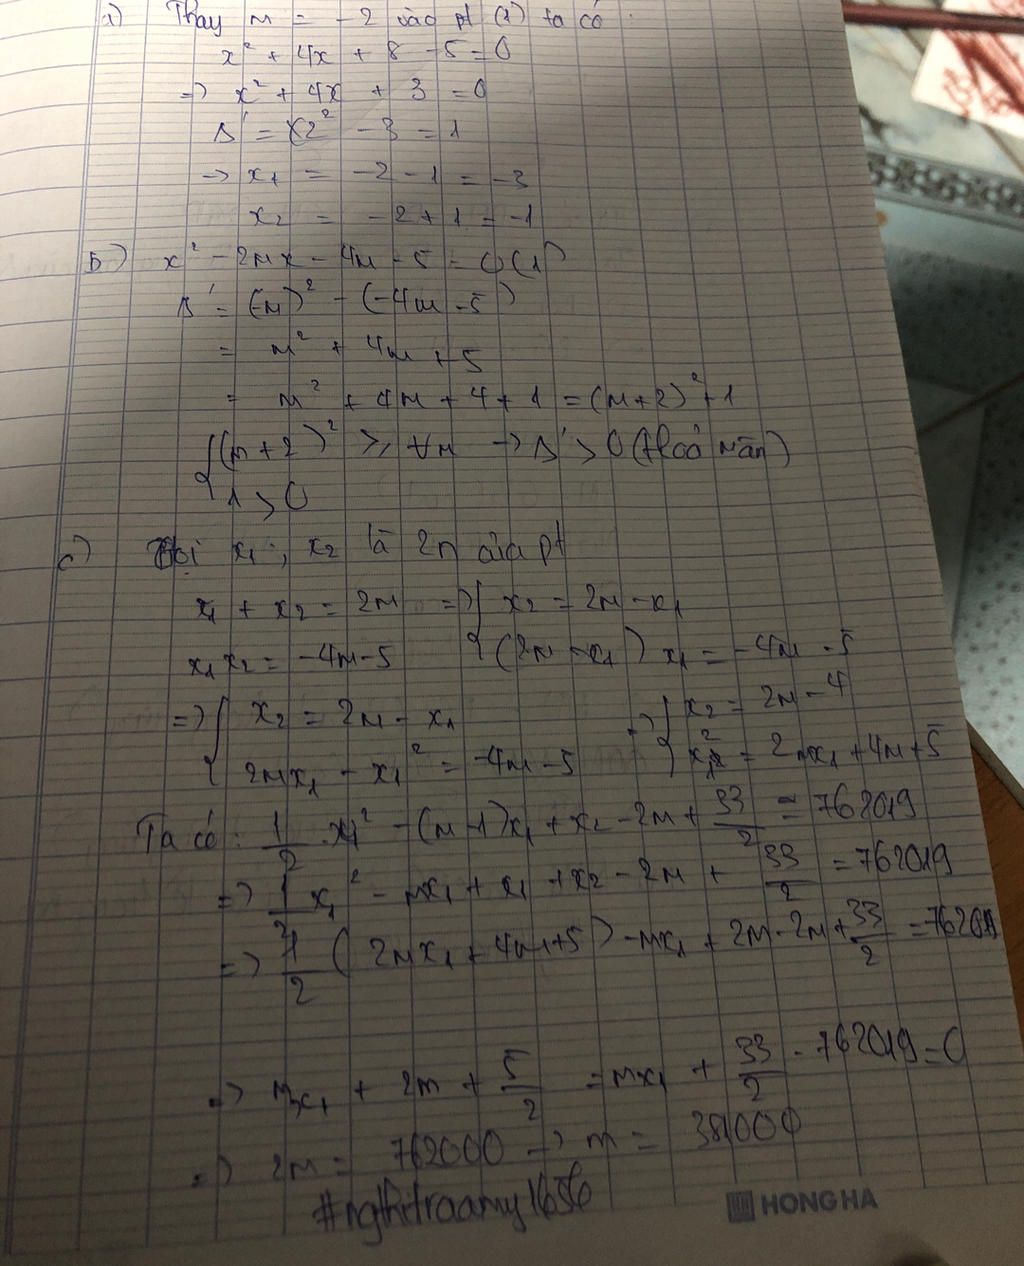 a) Thay m = -2 vào pt (1) ta có :
x² + 4x + 8 - 5 = 0
=> x² + 4x + 3 = 0
Δ' = 2² - 3 = 1
-> x₁ = -2 - 1 = -3
x₂ = -2 + 1 = -1
b) x² - 2mx - 4m - 5 = 0 (1)
Δ' = (-m)² - (-4m - 5)
= m² + 4m + 5
= m² + 4m + 4 + 1 = (m+2)² + 1
{ (m+2)² ≥, ∀m -> Δ' > 0 (thoả mãn)
1 > 0
c) Gọi x₁ ; x₂ là 2n của pt
x₁ + x₂ = 2m => { x₂ = 2m - x₁
x₁x₂ = -4m - 5 (2m - x₁) x₁ = -4m - 5
=> { x₂ = 2m - x₁ => { x₂ = 2m - 4
2mx₁ - x₁² = -4m - 5 x₁² = 2mx₁ + 4m + 5
Ta có : 1/2 x₁² - (m-1)x₁ + x₂ - 2m + 33/2 = 762019
=> 1/2 x₁² - mx₁ + x₁ + x₂ - 2m + 33/2 = 762019
=> 1/2 (2mx₁ + 4m + 5) - mx₁ + 2m - 2m + 33/2 = 762019
=> mx₁ + 2m + 5/2 = mx₁ + 33/2 - 762019 = 0
=> 2m = 762000 -> m = 381000
#nghitraamy1656
HONG HA